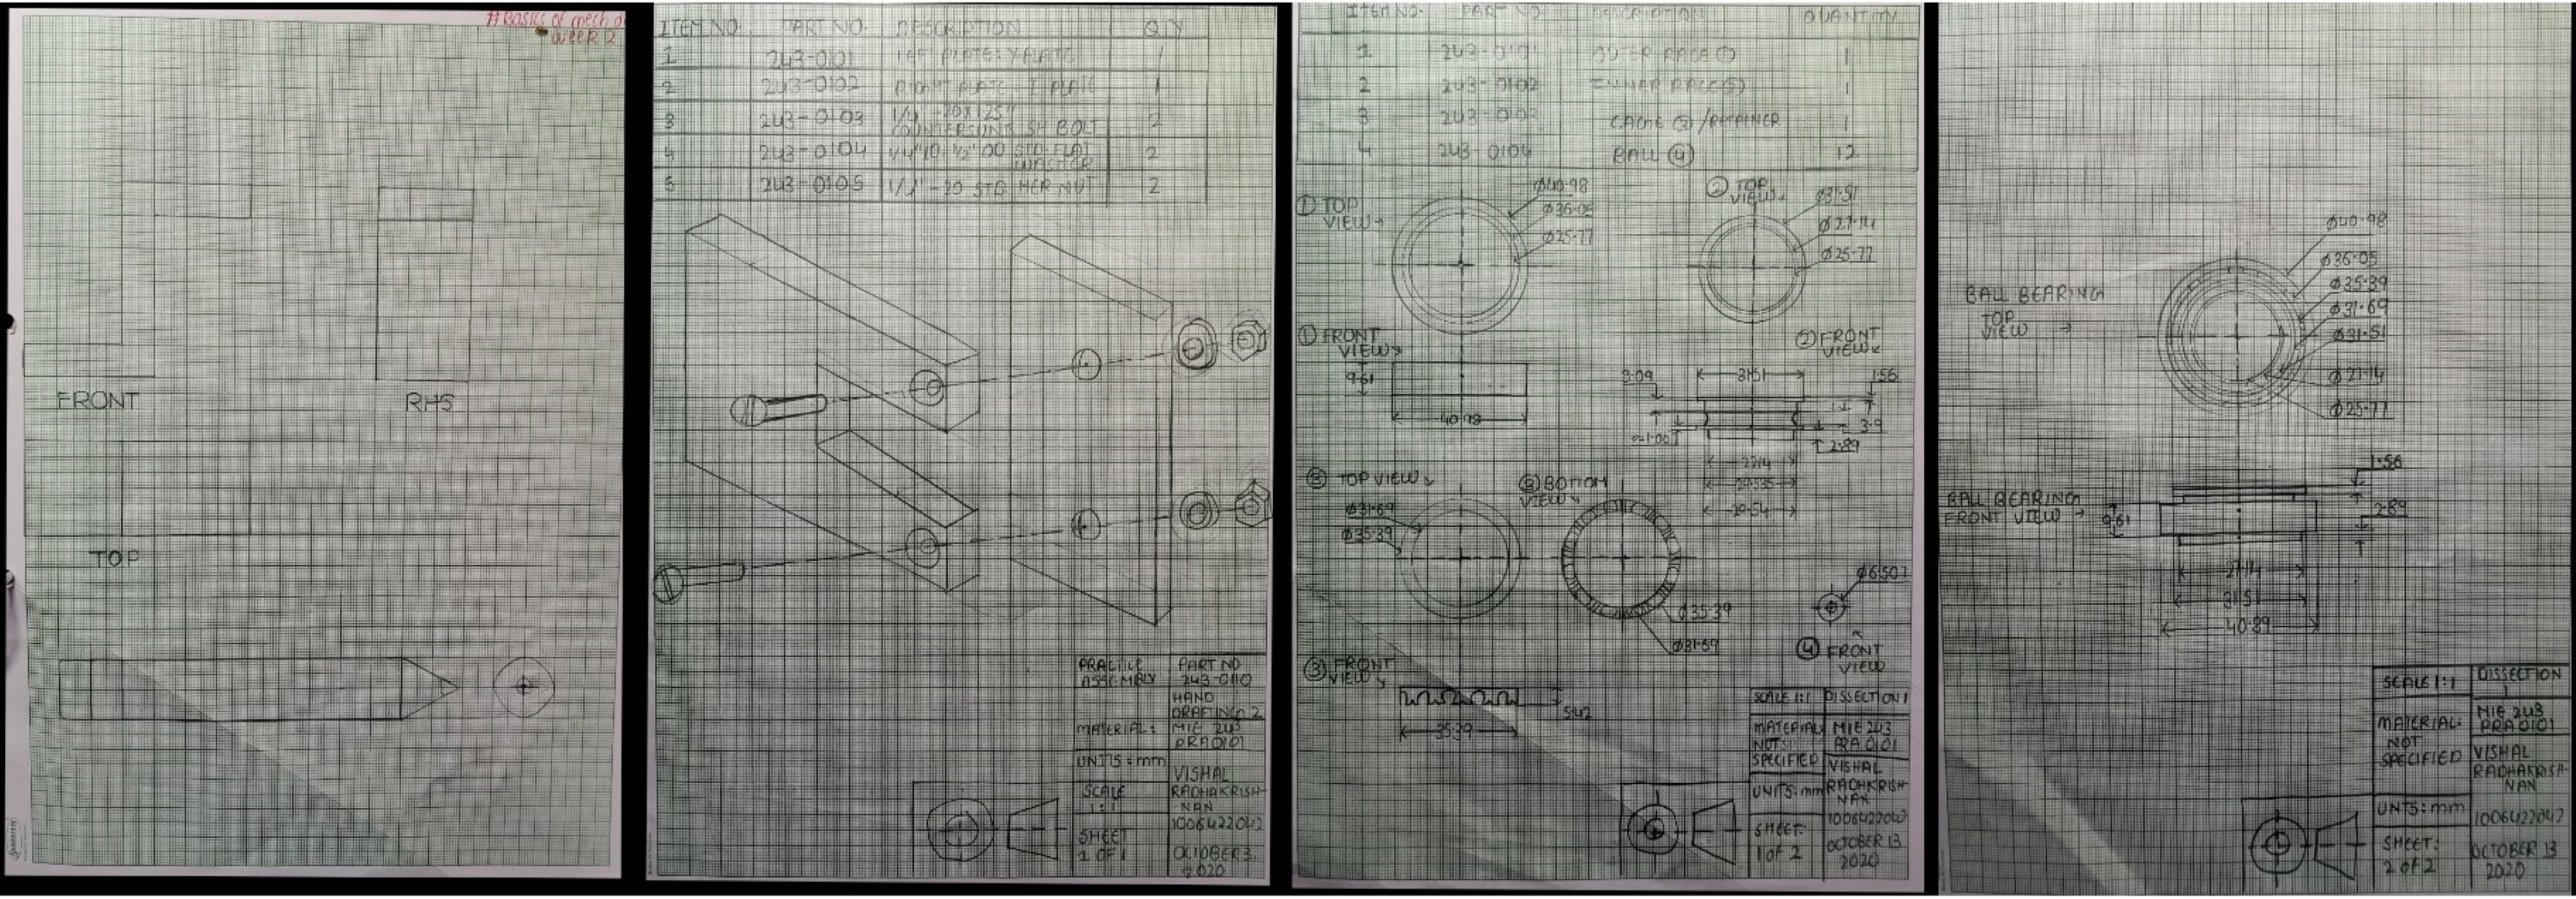 #Basics of mech
week 2
FRONT
RHS
TOP
ITEM NO. PART NO. DESCRIPTION QTY
1 243-0101 LEFT PLATE: Y PLATE 1
2 243-0102 RIGHT PLATE: I PLATE 1
3 243-0103 1/4" -20X1.25"
COUNTERSUNK SH BOLT 2
4 243-0104 1/4"ID, 1/2"OD STD FLAT
WASHER 2
5 243-0105 -20 STD HEX NUT 2
PRACTICE
ASSEMBLY
PART NO
243-0110
HAND
DRAFTING 2
MATERIAL:
MIE 243
PRA0101
UNITS: mm
SCALE
1:1
VISHAL
RADHAKRISH-
-NAN
1006422042
SHEET
1 OF 1
OCTOBER 3,
2020
ITEM NO. PART NO. DESCRIPTION QUANTITY
1 243-0101 OUTER RACE ① 1
2 243-0102 INNER RACE ② 1
3 243-0103 CAGE ③/RETAINER 1
4 243-0104 BALL ④ 12
① TOP
VIEW
Ø40.98
Ø36.05
Ø25.77
② TOP
VIEW
Ø31.51
Ø27.14
Ø25.77
① FRONT
VIEW
9.61
40.98
② FRONT
VIEW
3.09
31.51
1.56
3.9
≈1.00
2.89
27.14
29.54
③ TOP VIEW
Ø31.69
Ø35.39
③ BOTTOM
VIEW
Ø35.39
Ø31.69
Ø6.50
④ FRONT
VIEW
③ FRONT
VIEW
5.42
35.39
SCALE 1:1 DISSECTION 1
MATERIAL
NOT
SPECIFIED
MIE 243
PRA 0101
UNITS: mm
VISHAL
RADHAKRISH-
NAN
1006422042
SHEET:
1 of 2
OCTOBER 13
2020
BALL BEARING
TOP
VIEW
Ø40.98
Ø36.05
Ø35.39
Ø31.69
Ø31.51
Ø27.14
Ø25.77
BALL BEARING
FRONT VIEW
9.61
1.56
2.89
27.14
31.51
40.89
SCALE 1:1
DISSECTION
1
MATERIAL:
NOT
SPECIFIED
MIE 243
PRA0101
VISHAL
RADHAKRISH-
NAN
UNTS: mm
1006422042
SHEET:
2 of 2
OCTOBER 13
2020